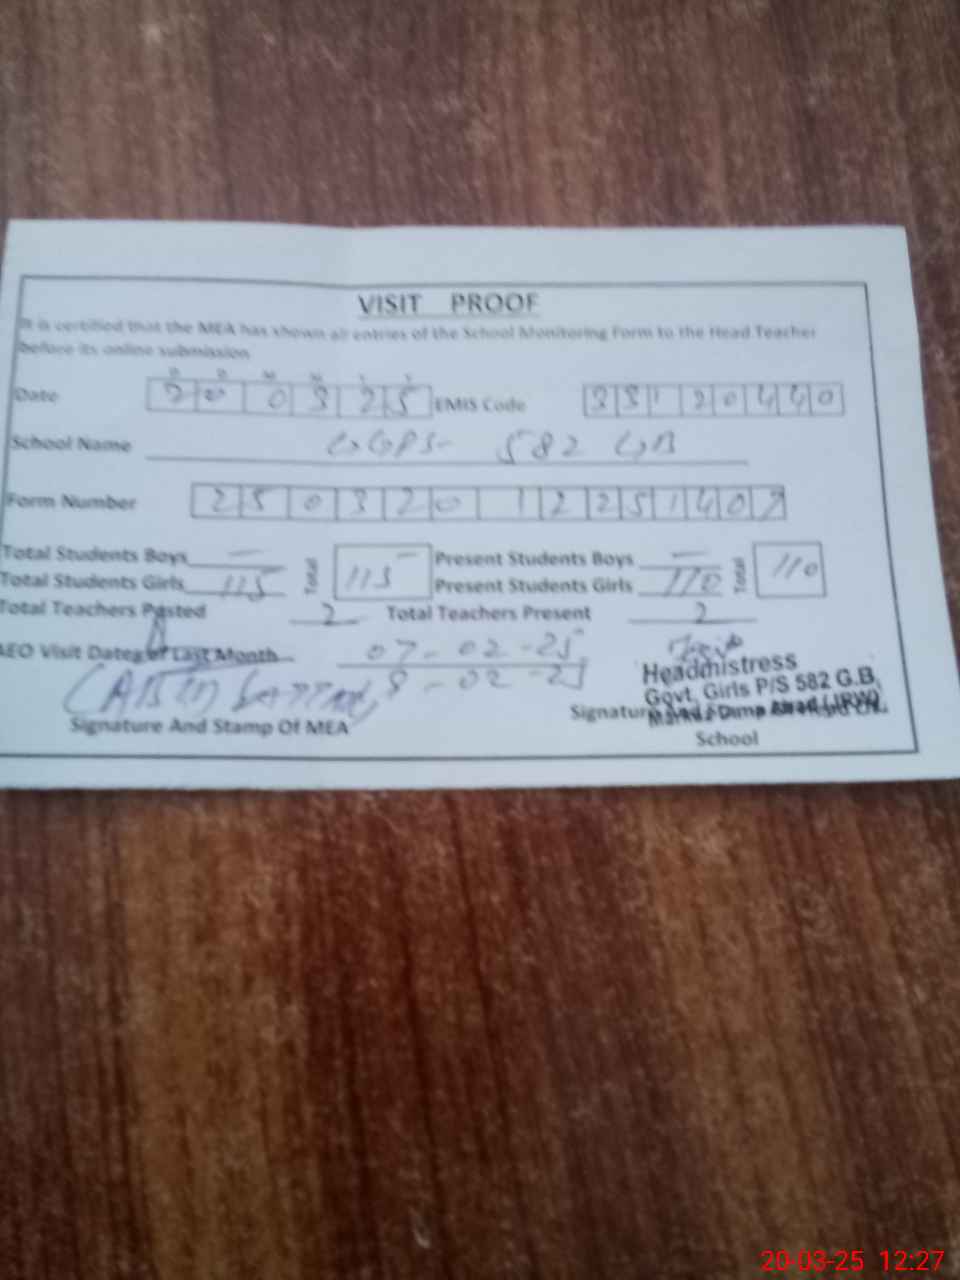 VISIT PROOF
It is certified that the MEA has shown all entries of the School Monitoring Form to the Head Teacher
before its online submission
D D M M Y Y
Date 20 03 25 EMIS Code 33120440
School Name GGPS- 582 GB
Form Number 25032012251407
Total Students Boys — Total 115 — Present Students Boys — Total 110
Total Students Girls 115 Present Students Girls 110
Total Teachers Posted 2 Total Teachers Present 2
AEO Visit Dates of Last Month 07-02-25
8-02-25
Headmistress
Govt. Girls P/S 582 G.B.
Signature And Stamp Of MEA
School
20-03-25 12:27